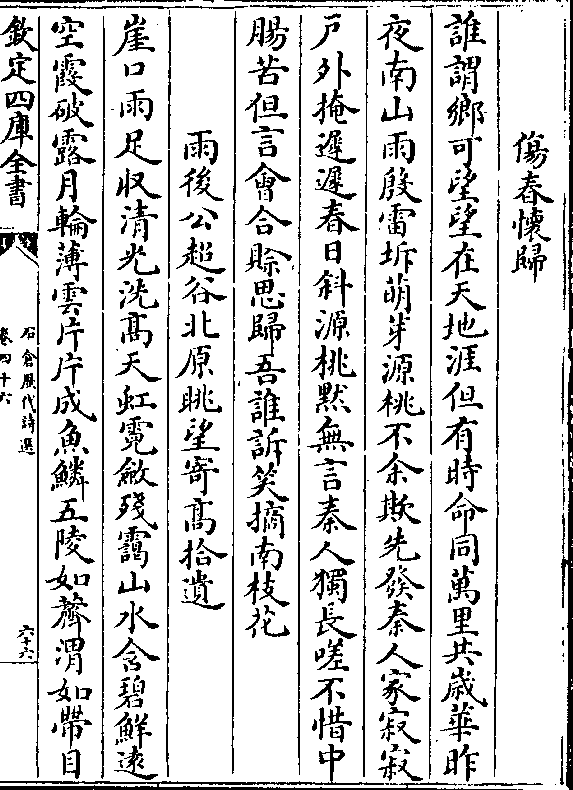 傷春懷歸
誰謂鄉可望望在天地涯但有時命同萬里共歳華昨
夜南山雨殷雷坼萌芽源桃不余欺先發秦人家寂寂
戸外掩遲遲春日斜源桃黙無言秦人獨長嗟不惜中
腸苦但言會合賒思歸吾誰訴笑摘南枝花
雨後公超谷北原眺望寄髙拾遺
崖口雨足収清光洗髙天虹霓斂殘靄山水含碧鮮逺
空霞破露月輪薄雲片片成魚鱗五陵如薺渭如帶目
欽定四庫全書
石倉歴代詩選
卷四十六
六十六